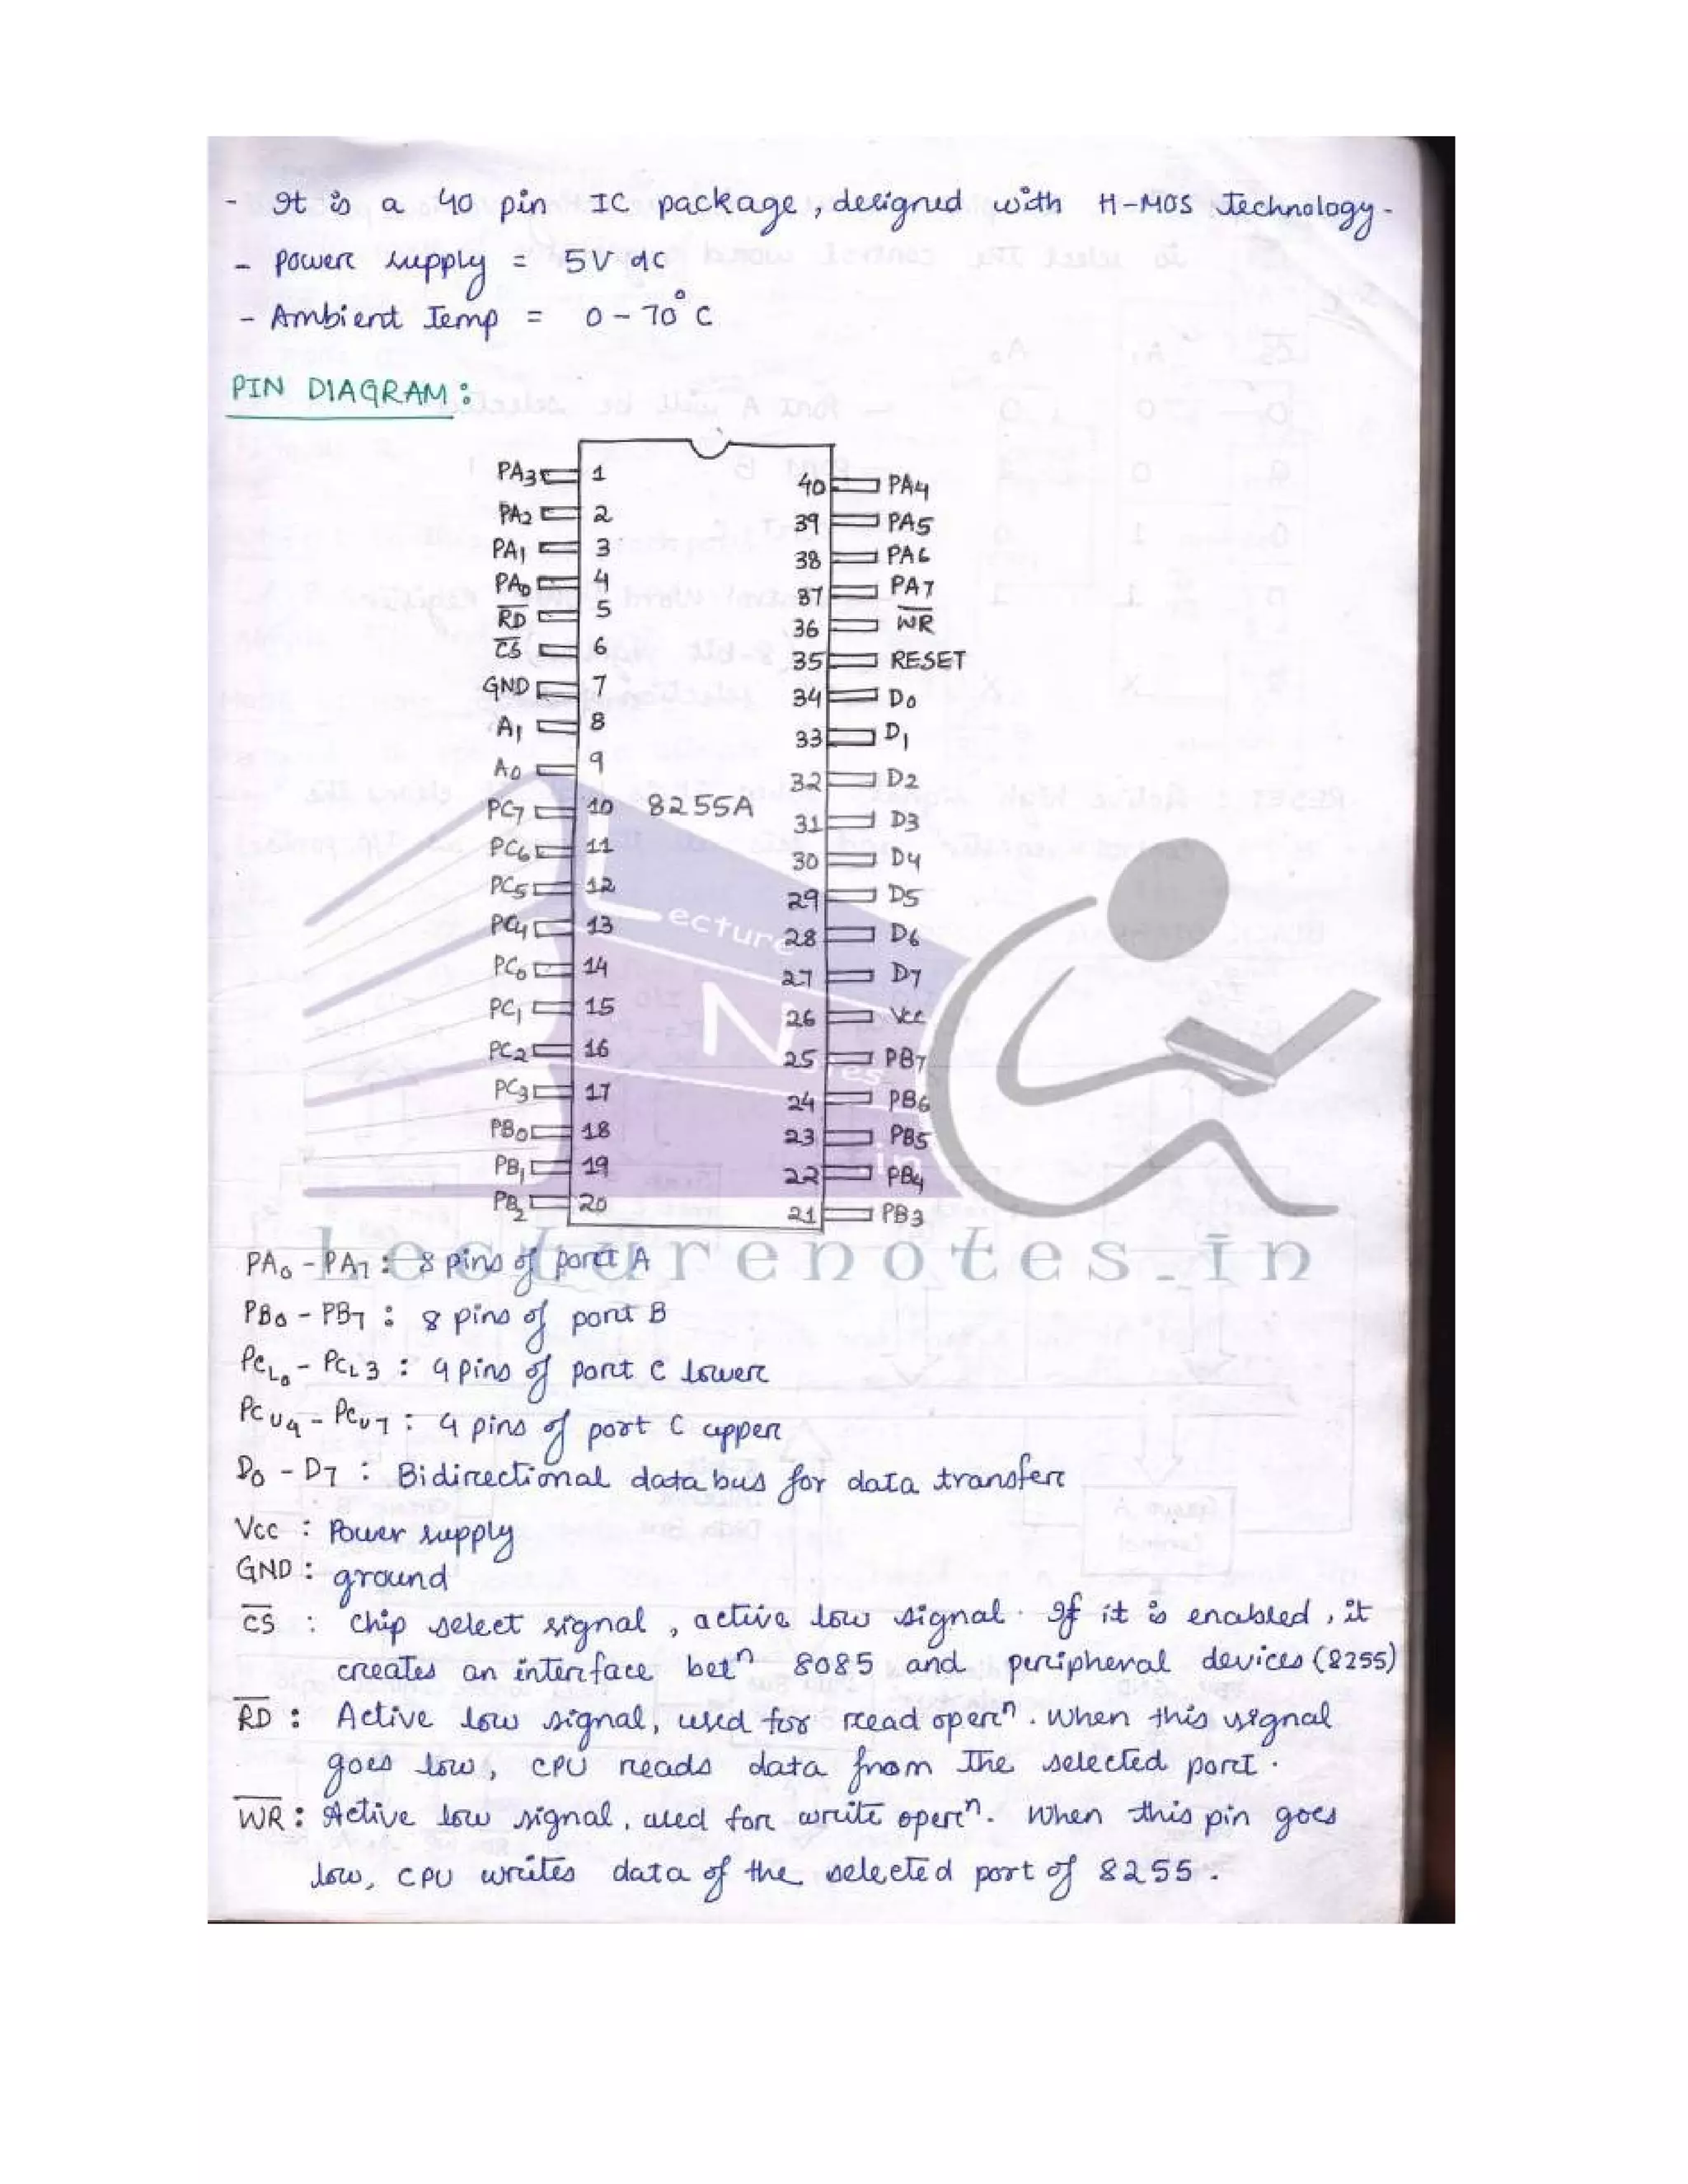 - It is a 40 pin IC package, designed with H-MOS Technology.
- Power supply = 5V dc
- Ambient Temp = 0 - 70°C
PIN DIAGRAM:
PA3 1 40 PA4
PA2 2 39 PA5
PA1 3 38 PA6
PA0 4 37 PA7
R̅D̅ 5 36 W̅R̅
C̅S̅ 6 35 RESET
GND 7 34 D0
A1 8 33 D1
A0 9 32 D2
PC7 10 8255A 31 D3
PC6 11 30 D4
PC5 12 29 D5
PC4 13 28 D6
PC0 14 27 D7
PC1 15 26 Vcc
PC2 16 25 PB7
PC3 17 24 PB6
PB0 18 23 PB5
PB1 19 22 PB4
PB2 20 21 PB3
Lecture
Notes
.in
Lecturenotes.in
PA0 - PA7 : 8 pins of port A
PB0 - PB7 : 8 pins of port B
PCL0 - PCL3 : 4 pins of port C lower
PCU4 - PCU7 : 4 pins of port C upper
D0 - D7 : Bidirectional data bus for data transfer
Vcc : Power supply
GND : ground
C̅S̅ : Chip select signal, active low signal. If it is enabled, it
creates an interface betn 8085 and peripheral devices (8255)
R̅D̅ : Active low signal, used for read opern. When this signal
goes low, CPU reads data from the selected port.
W̅R̅ : Active low signal, used for write opern. When this pin goes
low, CPU writes data of the selected port of 8255.